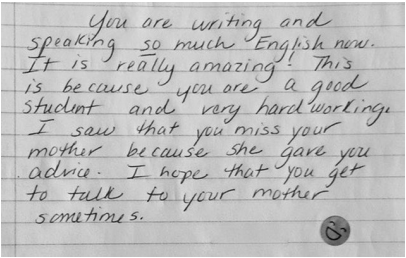 You are writing and
speaking so much English now.
It is really amazing! This
is because you are a good
student and very hard working.
I saw that you miss your
mother because she gave you
advice. I hope that you get
to talk to your mother
sometimes.